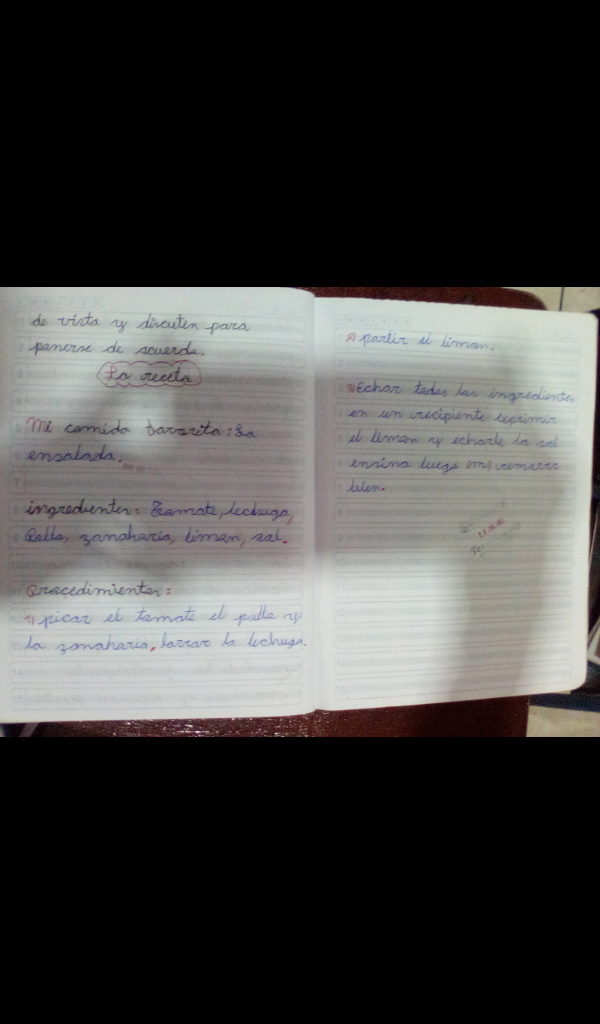 de vista y discuten para
ponerse de acuerdo.
La receta
Mi comida favorita: La
ensalada.
ingredientes: Tomate, lechuga,
Pollo, zanahoria, limon, sal.
Procedimientos:
1) picar el tomate el pollo y
la zanahoria, lavar la lechuga.
2) partir el limon.
3) Echar todos los ingredientes
en un recipiente exprimir
el limon y echarle la sal
encima luego
bien.